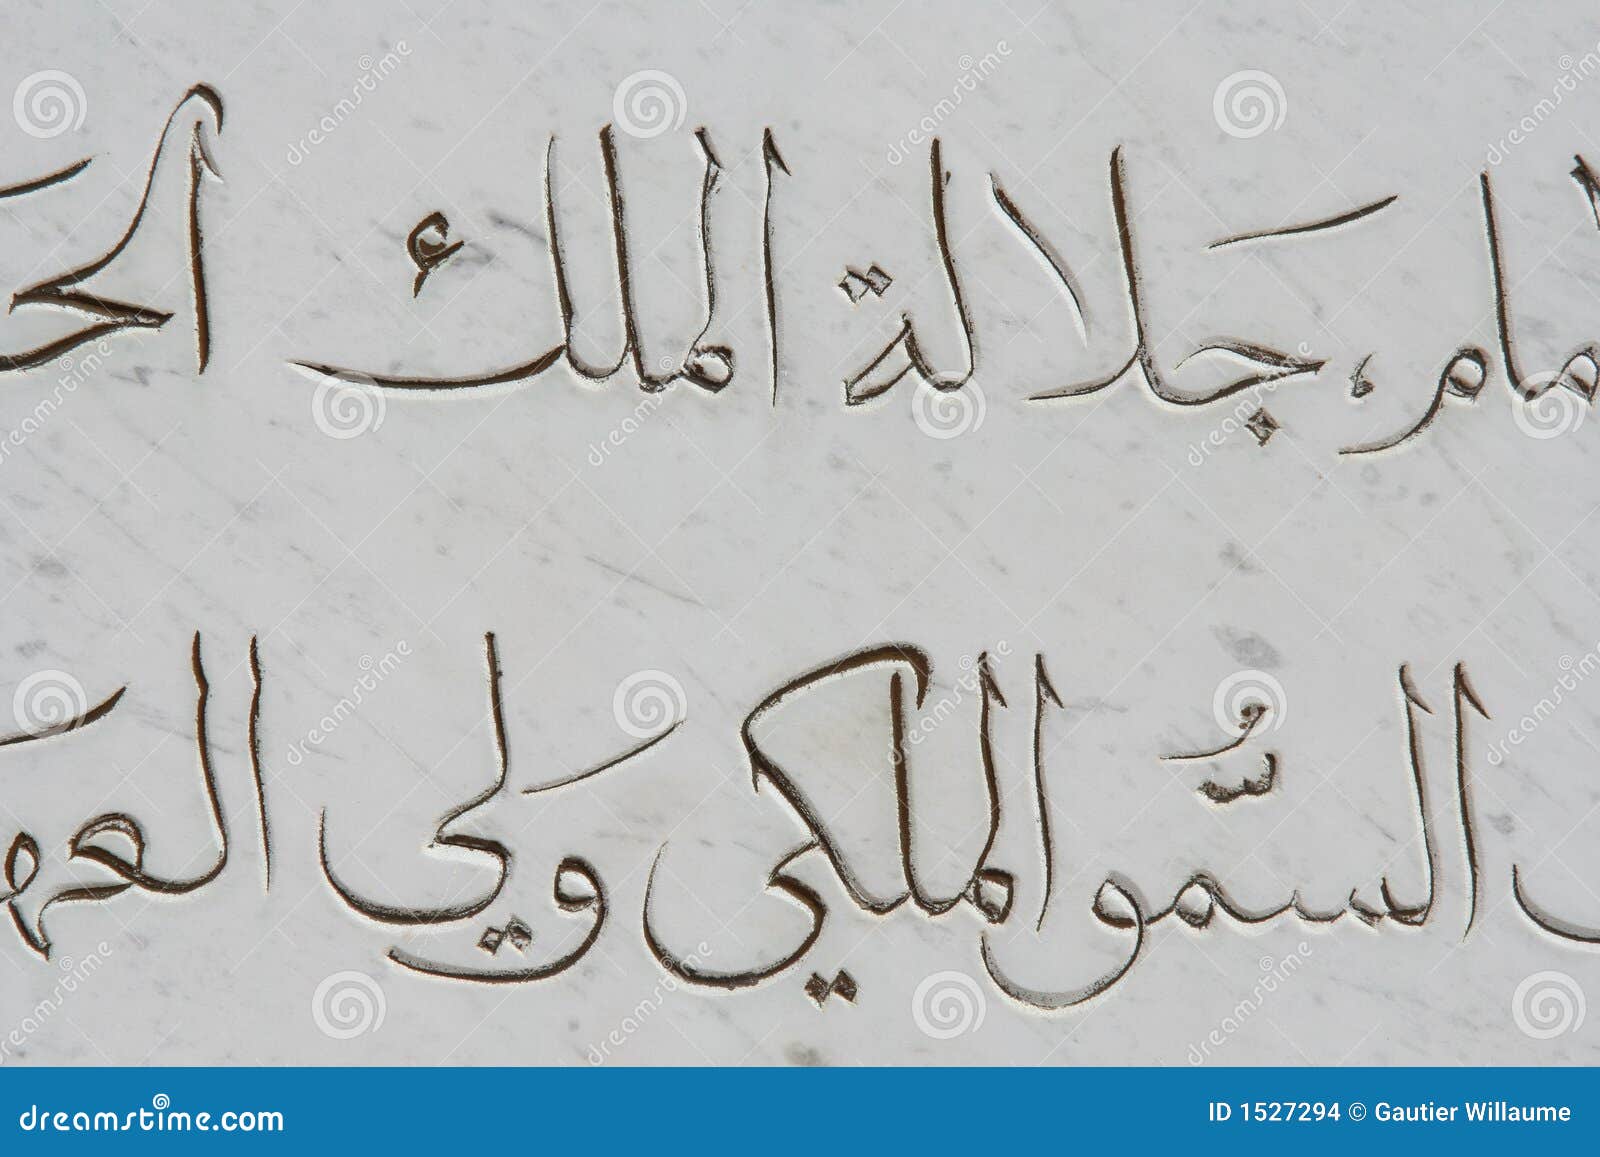 مام، جَلالة الملك الحَ
السُّمو الملكي وَلي العهَ
dreamstime.com
ID 1527294 © Gautier Willaume